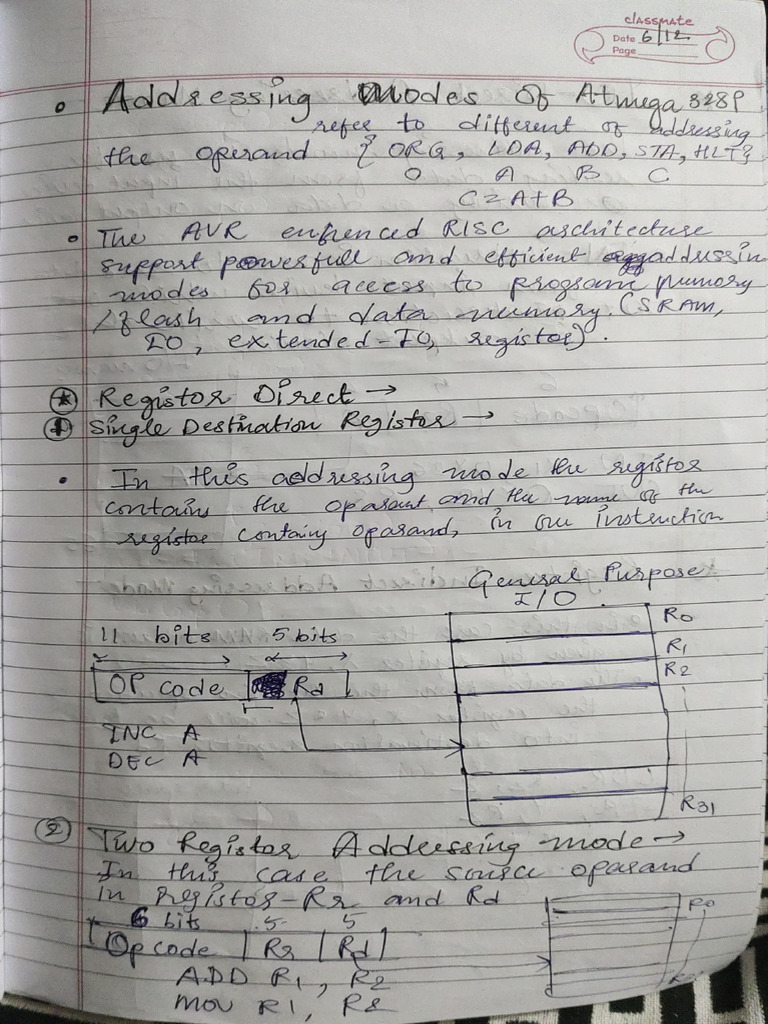 classmate
Date 6/12
Page
Addressing Modes of Atmega 328P
refer to different of addressing
the operand { ORG, LDA, ADD, STA, HLT}
O A B C
C = A + B
The AVR enhenced RISC architecture
support powerfull and efficient addressin
modes for access to program memory
/flash and data memory. (SRAM,
IO, extended-IO, registor).
Registor Direct →
1 Single Destination Registor →
In this addressing mode the registor
contains the oparant and the name of the
registor containg oparand, in our instruction
General Purpose
I/O
11 bits 5 bits
OP code Rd
R0
R1
R2
INC A
DEC A
R31
2 Two Registor Addressing mode →
In this case the source oparand
in registor - Rr and Rd
6 bits 5 5
Op code Rr Rd
R0
ADD R1, R2
MOV R1, R2